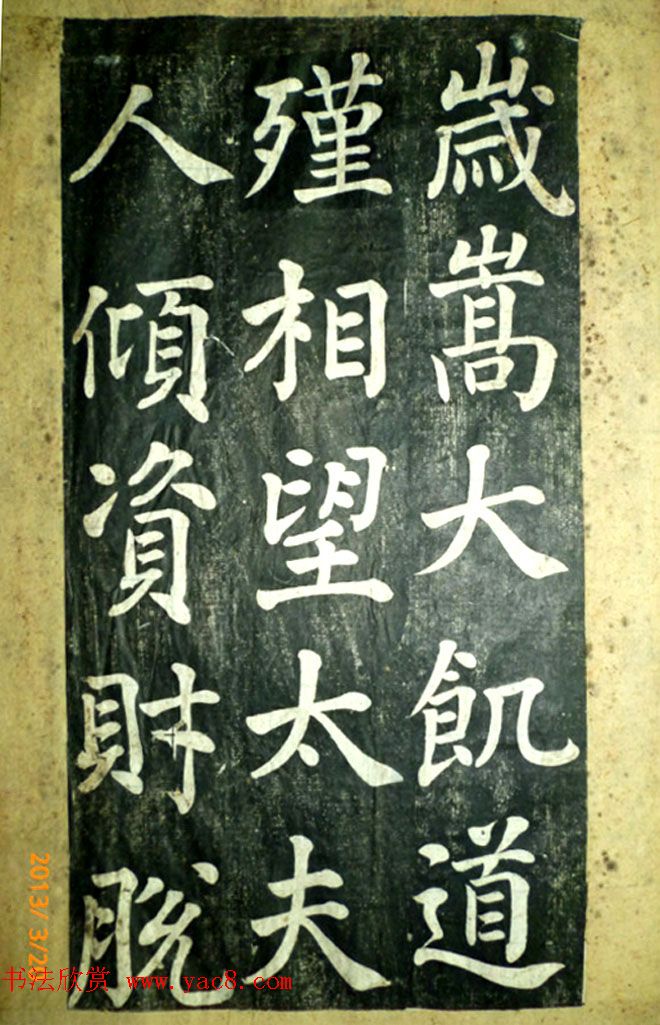 歲嵩大飢道
殣相望太夫
人傾資財脫
2013/ 3/2
书法欣赏 www.yac8.com